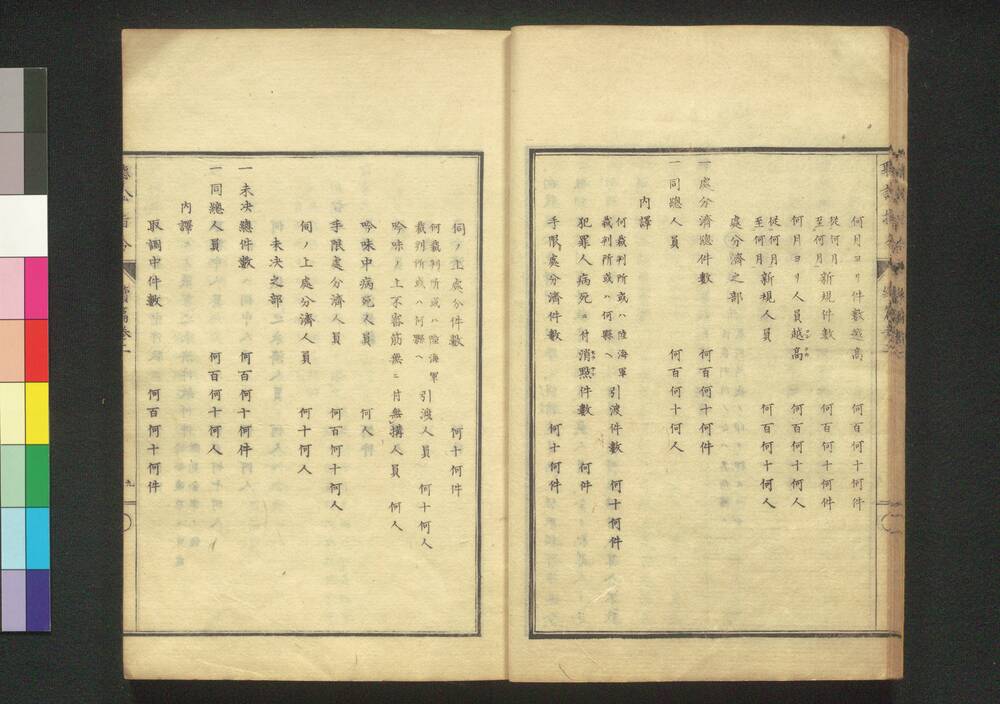 何月ヨリ件數越高 何百何十何件
從何月至何月新規件數 何百何十何件
何月ヨリ人員越高 何百何十何人
從何月至何月新規人員 何百何十何人
處分濟之部
一處分濟總件數 何百何十何件
一同總人員 何百何十何人
內譯
何裁判所或ハ陸海軍
裁判所或ハ何縣ヘ 引渡件數 何十何件
犯罪人病死ニ付消㸃件數 何件
手限處分濟件數 何十何件
伺ノ上處分件數 何十何件
何裁判所或ハ陸海軍
裁判所或ハ何縣ヘ 引渡人員 何十何人
吟味ノ上不審筋無ニ付無搆人員 何人
吟味中病死人員 何人
手限處分濟人員 何百何十何人
伺ノ上處分濟人員 何十何人
未决之部
一未决總件數 何百何十何件
一同總人員 何百何十何人
內譯
取調中件數 何百何十何件
九